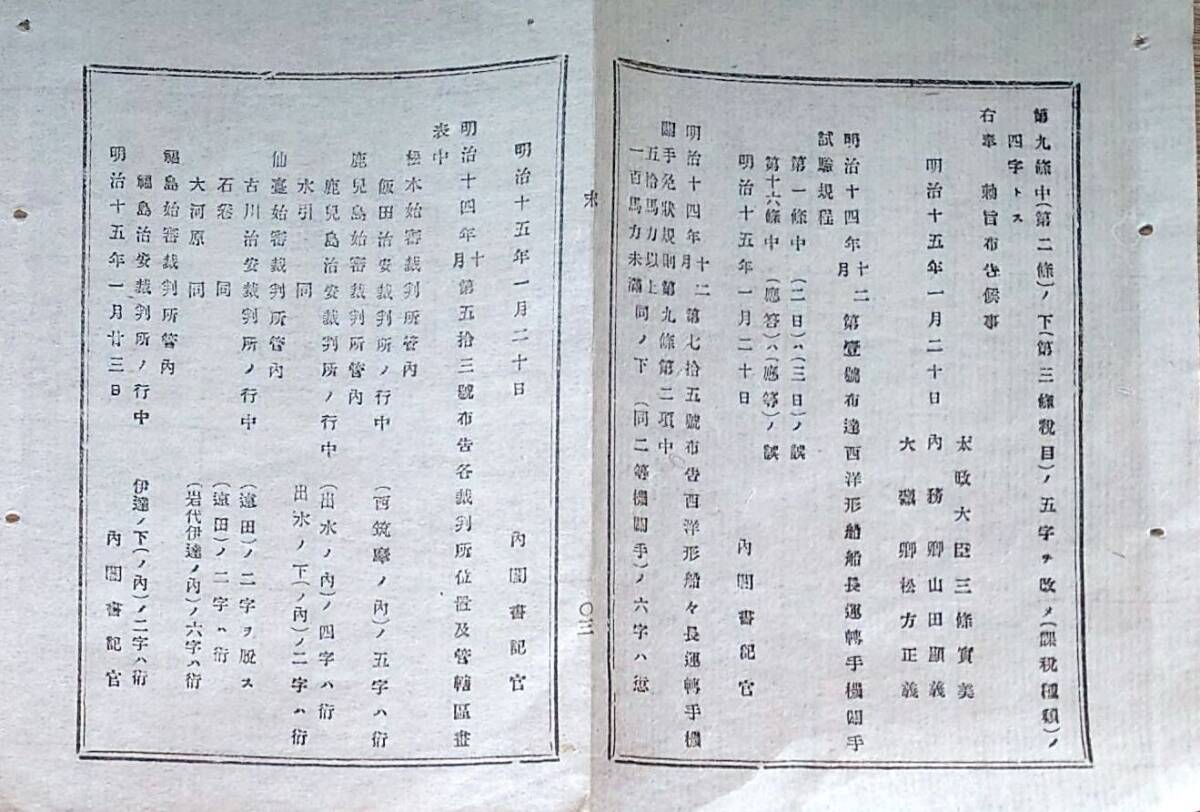 第九條中(第二條)ノ下(第三條稅目)ノ五字ヲ改メ(課稅種類)ノ
四字トス
右奉 勅旨布告候事
明治十五年一月二十日
太政大臣三條實美
內務卿山田顯義
大藏卿松方正義
明治十四年十二月第壹號布達西洋形船船長運轉手機關手
試驗規程
第一條中(二日)ハ(三日)ノ誤
第十六條中(應答)ハ(應等)ノ誤
明治十五年一月二十日
內閣書記官
明治十四年十二月第七拾五號布告西洋形船々長運轉手機
關手免狀規則第九條第二項中
五拾馬力以上
一百馬力未滿同ノ下(同二等機關手)ノ六字ハ愆
〇二一
明治十五年一月二十日
內閣書記官
明治十四年十月第五拾三號布告各裁判所位置及管轄區畫
表中
松本始審裁判所管內
飯田治安裁判所ノ行中 (西筑摩ノ內)ノ五字ハ衍
鹿兒島始審裁判所管內
鹿兒島治安裁判所ノ行中 (出水ノ內)ノ四字ハ衍
水引 同 出水ノ下(ノ內)ノ二字ハ衍
仙臺始審裁判所管內
古川治安裁判所ノ行中 (遠田)ノ二字ヲ脫ス
石卷 同 (遠田)ノ二字ハ衍
大河原 同 (岩代伊達ノ內)ノ六字ハ衍
福島始審裁判所管內
福島治安裁判所ノ行中 伊達ノ下(ノ內)ノ二字ハ衍
明治十五年一月廿三日
內閣書記官